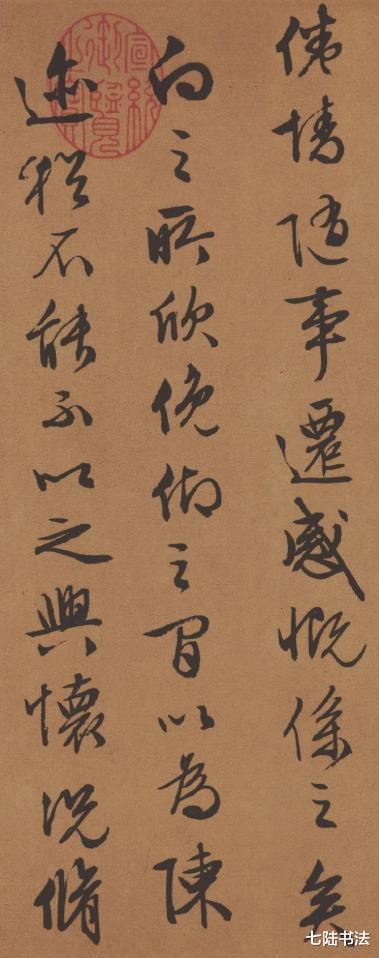 倦情隨事遷感慨係之矣
向之所欣俛仰之間以為陳
迹猶不能不以之興懷況脩
宣統御覽之寶
七陆书法